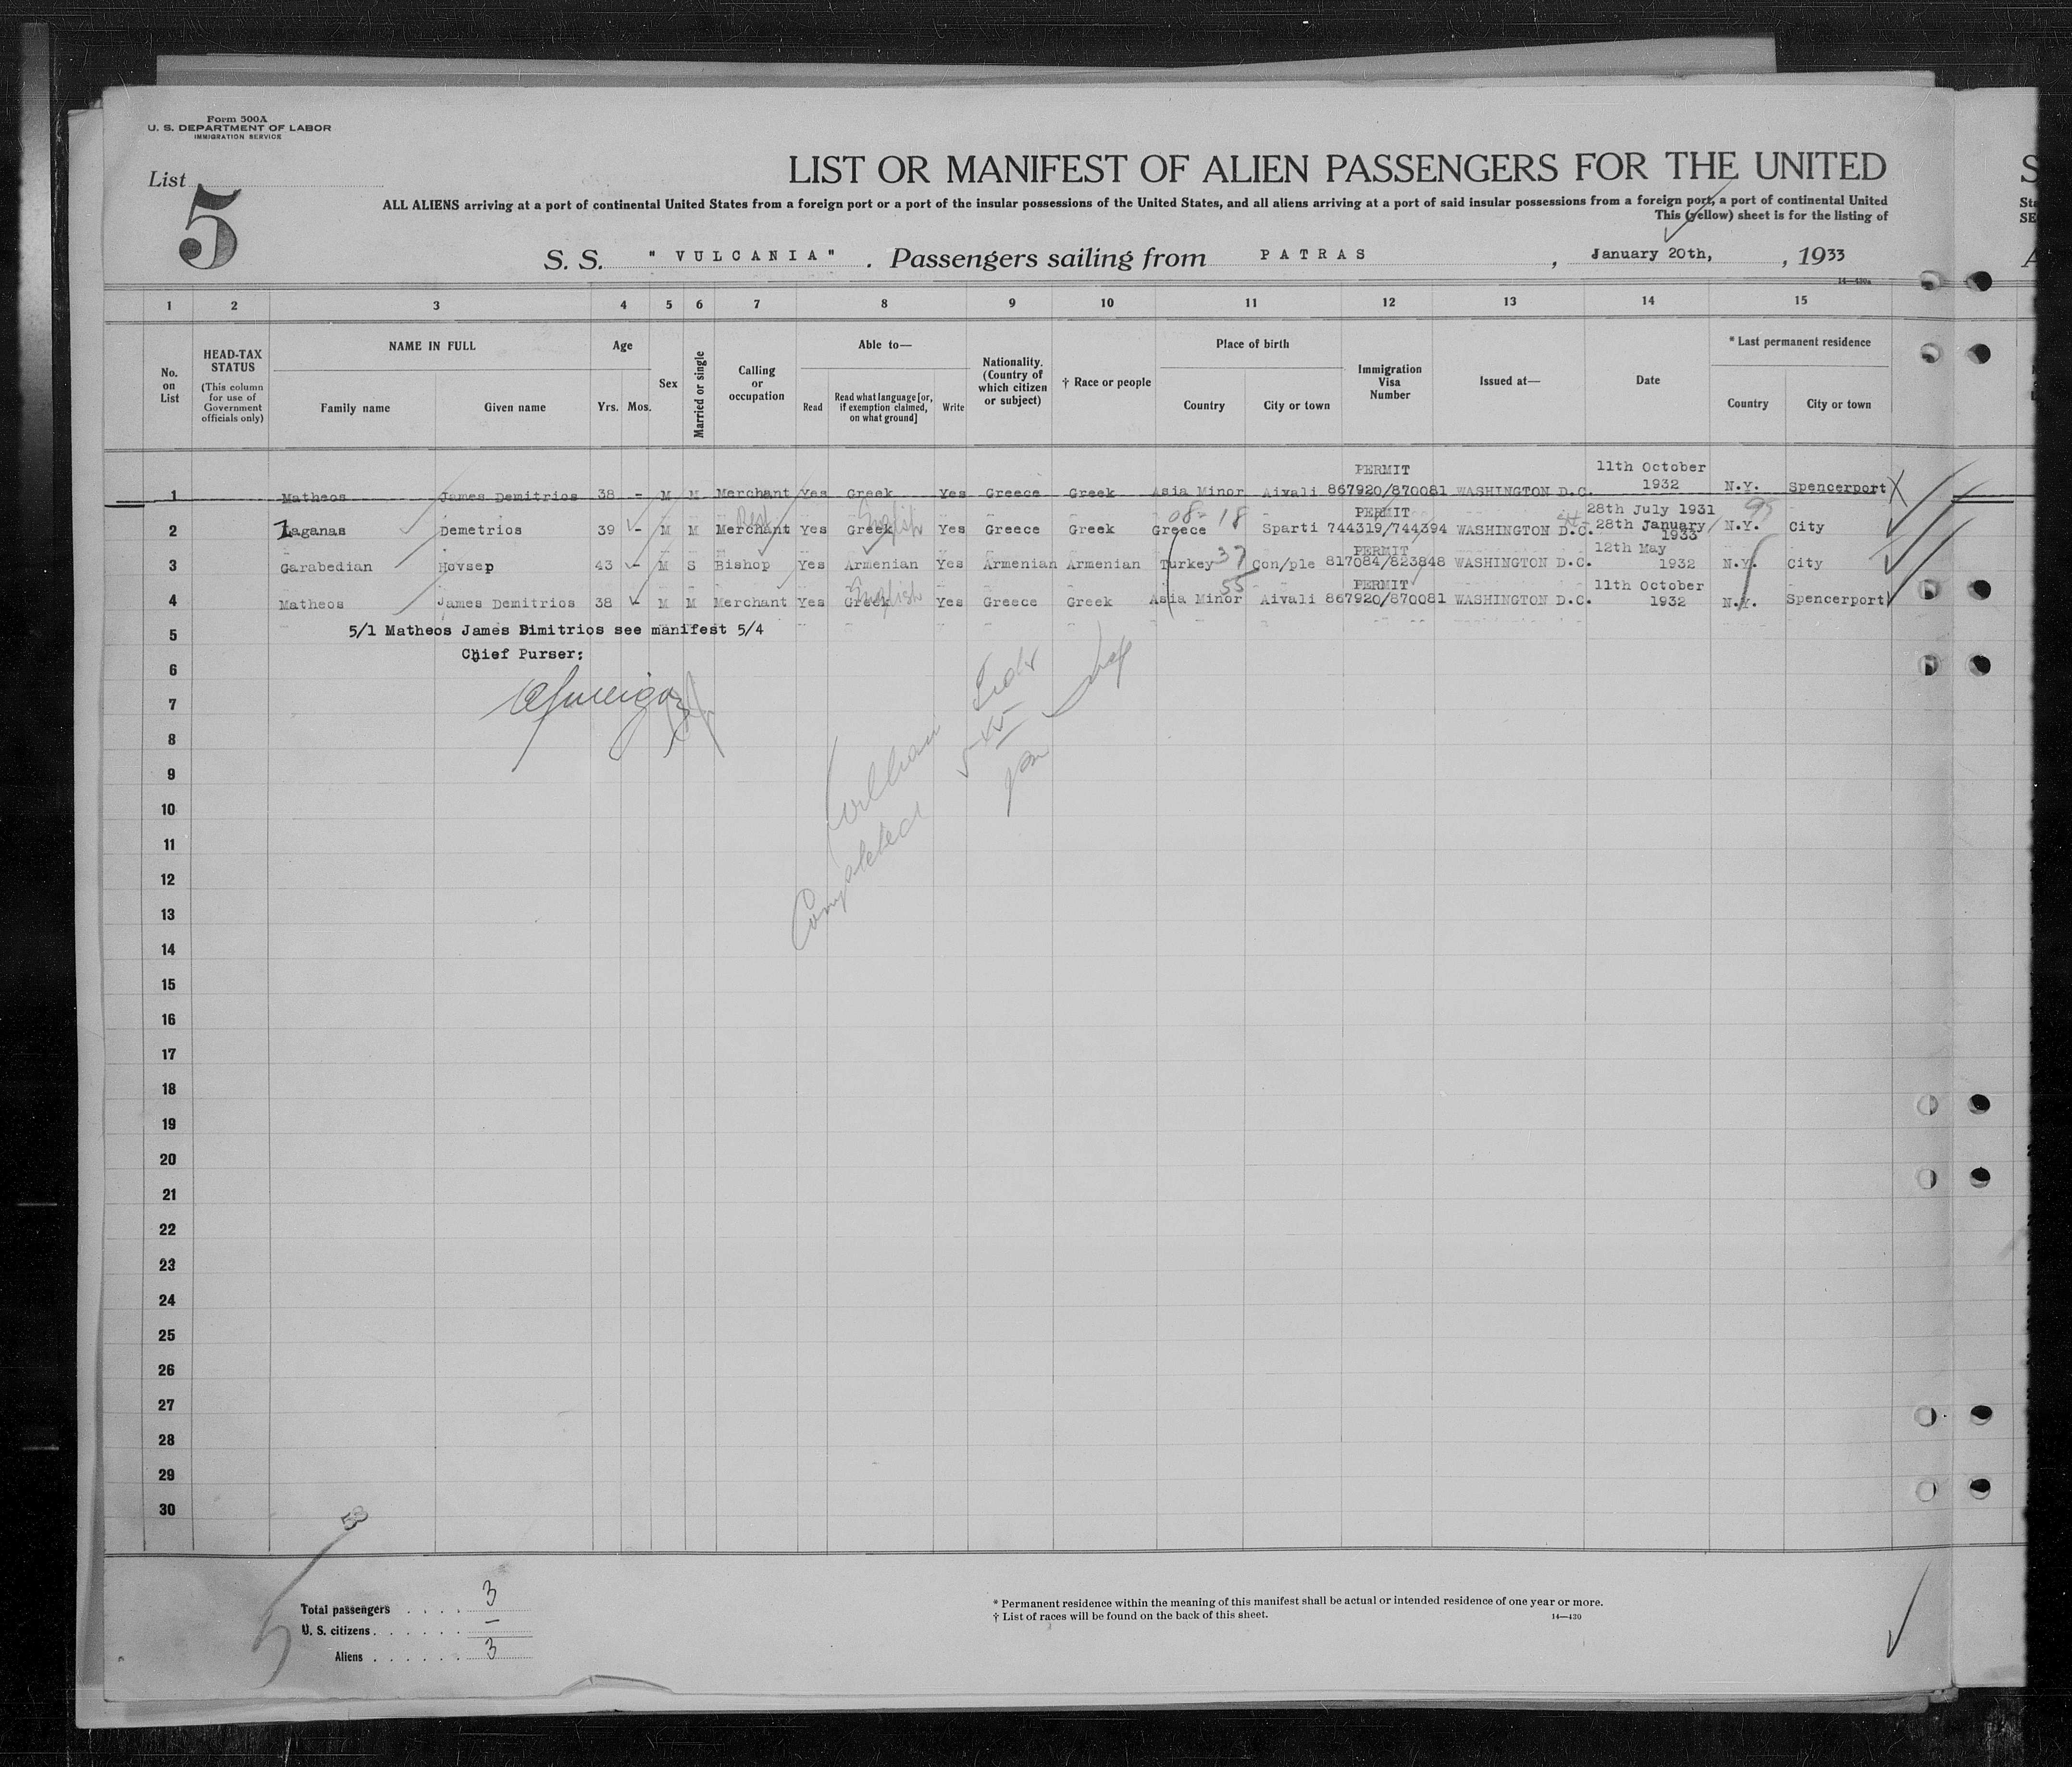 Form 500A
U. S. DEPARTMENT OF LABOR
IMMIGRATION SERVICE
List
5
LIST OR MANIFEST OF ALIEN PASSENGERS FOR THE UNITED
ALL ALIENS arriving at a port of continental United States from a foreign port or a port of the insular possessions of the United States, and all aliens arriving at a port of said insular possessions from a foreign port, a port of continental United
This (yellow) sheet is for the listing of
S. S. "VULCANIA". Passengers sailing from PATRAS, January 20th, , 1933
14—430a
1 2 3 4 5 6 7 8 9 10 11 12 13 14 15
No. on List
HEAD-TAX STATUS
(This column for use of Government officials only)
NAME IN FULL
Family name Given name
Age
Yrs. Mos.
Sex
Married or single
Calling or occupation
Able to—
Read Read what language [or, if exemption claimed, on what ground] Write
Nationality. (Country of which citizen or subject)
† Race or people
Place of birth
Country City or town
Immigration Visa Number
Issued at—
Date
* Last permanent residence
Country City or town
PERMIT 11th October
1 Matheos James Demitrios 38 - M M Merchant Yes Greek Yes Greece Greek Asia Minor Aivali 867920/870081 WASHINGTON D.C. 1932 N.Y. Spencerport
English 08-18 PERMIT 28th July 1931 95
2 Zaganas Demetrios 39 - M M Merchant Yes Greek Yes Greece Greek Greece Sparti 744319/744394 WASHINGTON D.C. 28th January 1933 N.Y. City
37 PERMIT 12th May
3 Garabedian Hovsep 43 - M S Bishop Yes Armenian Yes Armenian Armenian Turkey Con/ple 817084/823848 WASHINGTON D.C. 1932 N.Y. City
English 55 PERMIT 11th October
4 Matheos James Demitrios 38 - M M Merchant Yes Greek Yes Greece Greek Asia Minor Aivali 867920/870081 WASHINGTON D.C. 1932 N.Y. Spencerport
5 5/1 Matheos James Dimitrios see manifest 5/4
Chief Purser;
6
7
8
9
10
11
12
Completed
13
14
15
16
17
18
19
20
21
22
23
24
25
26
27
28
29
30
Total passengers . . . . 3
U. S. citizens . . . . . . —
Aliens . . . . . . 3
* Permanent residence within the meaning of this manifest shall be actual or intended residence of one year or more.
† List of races will be found on the back of this sheet. 14—430